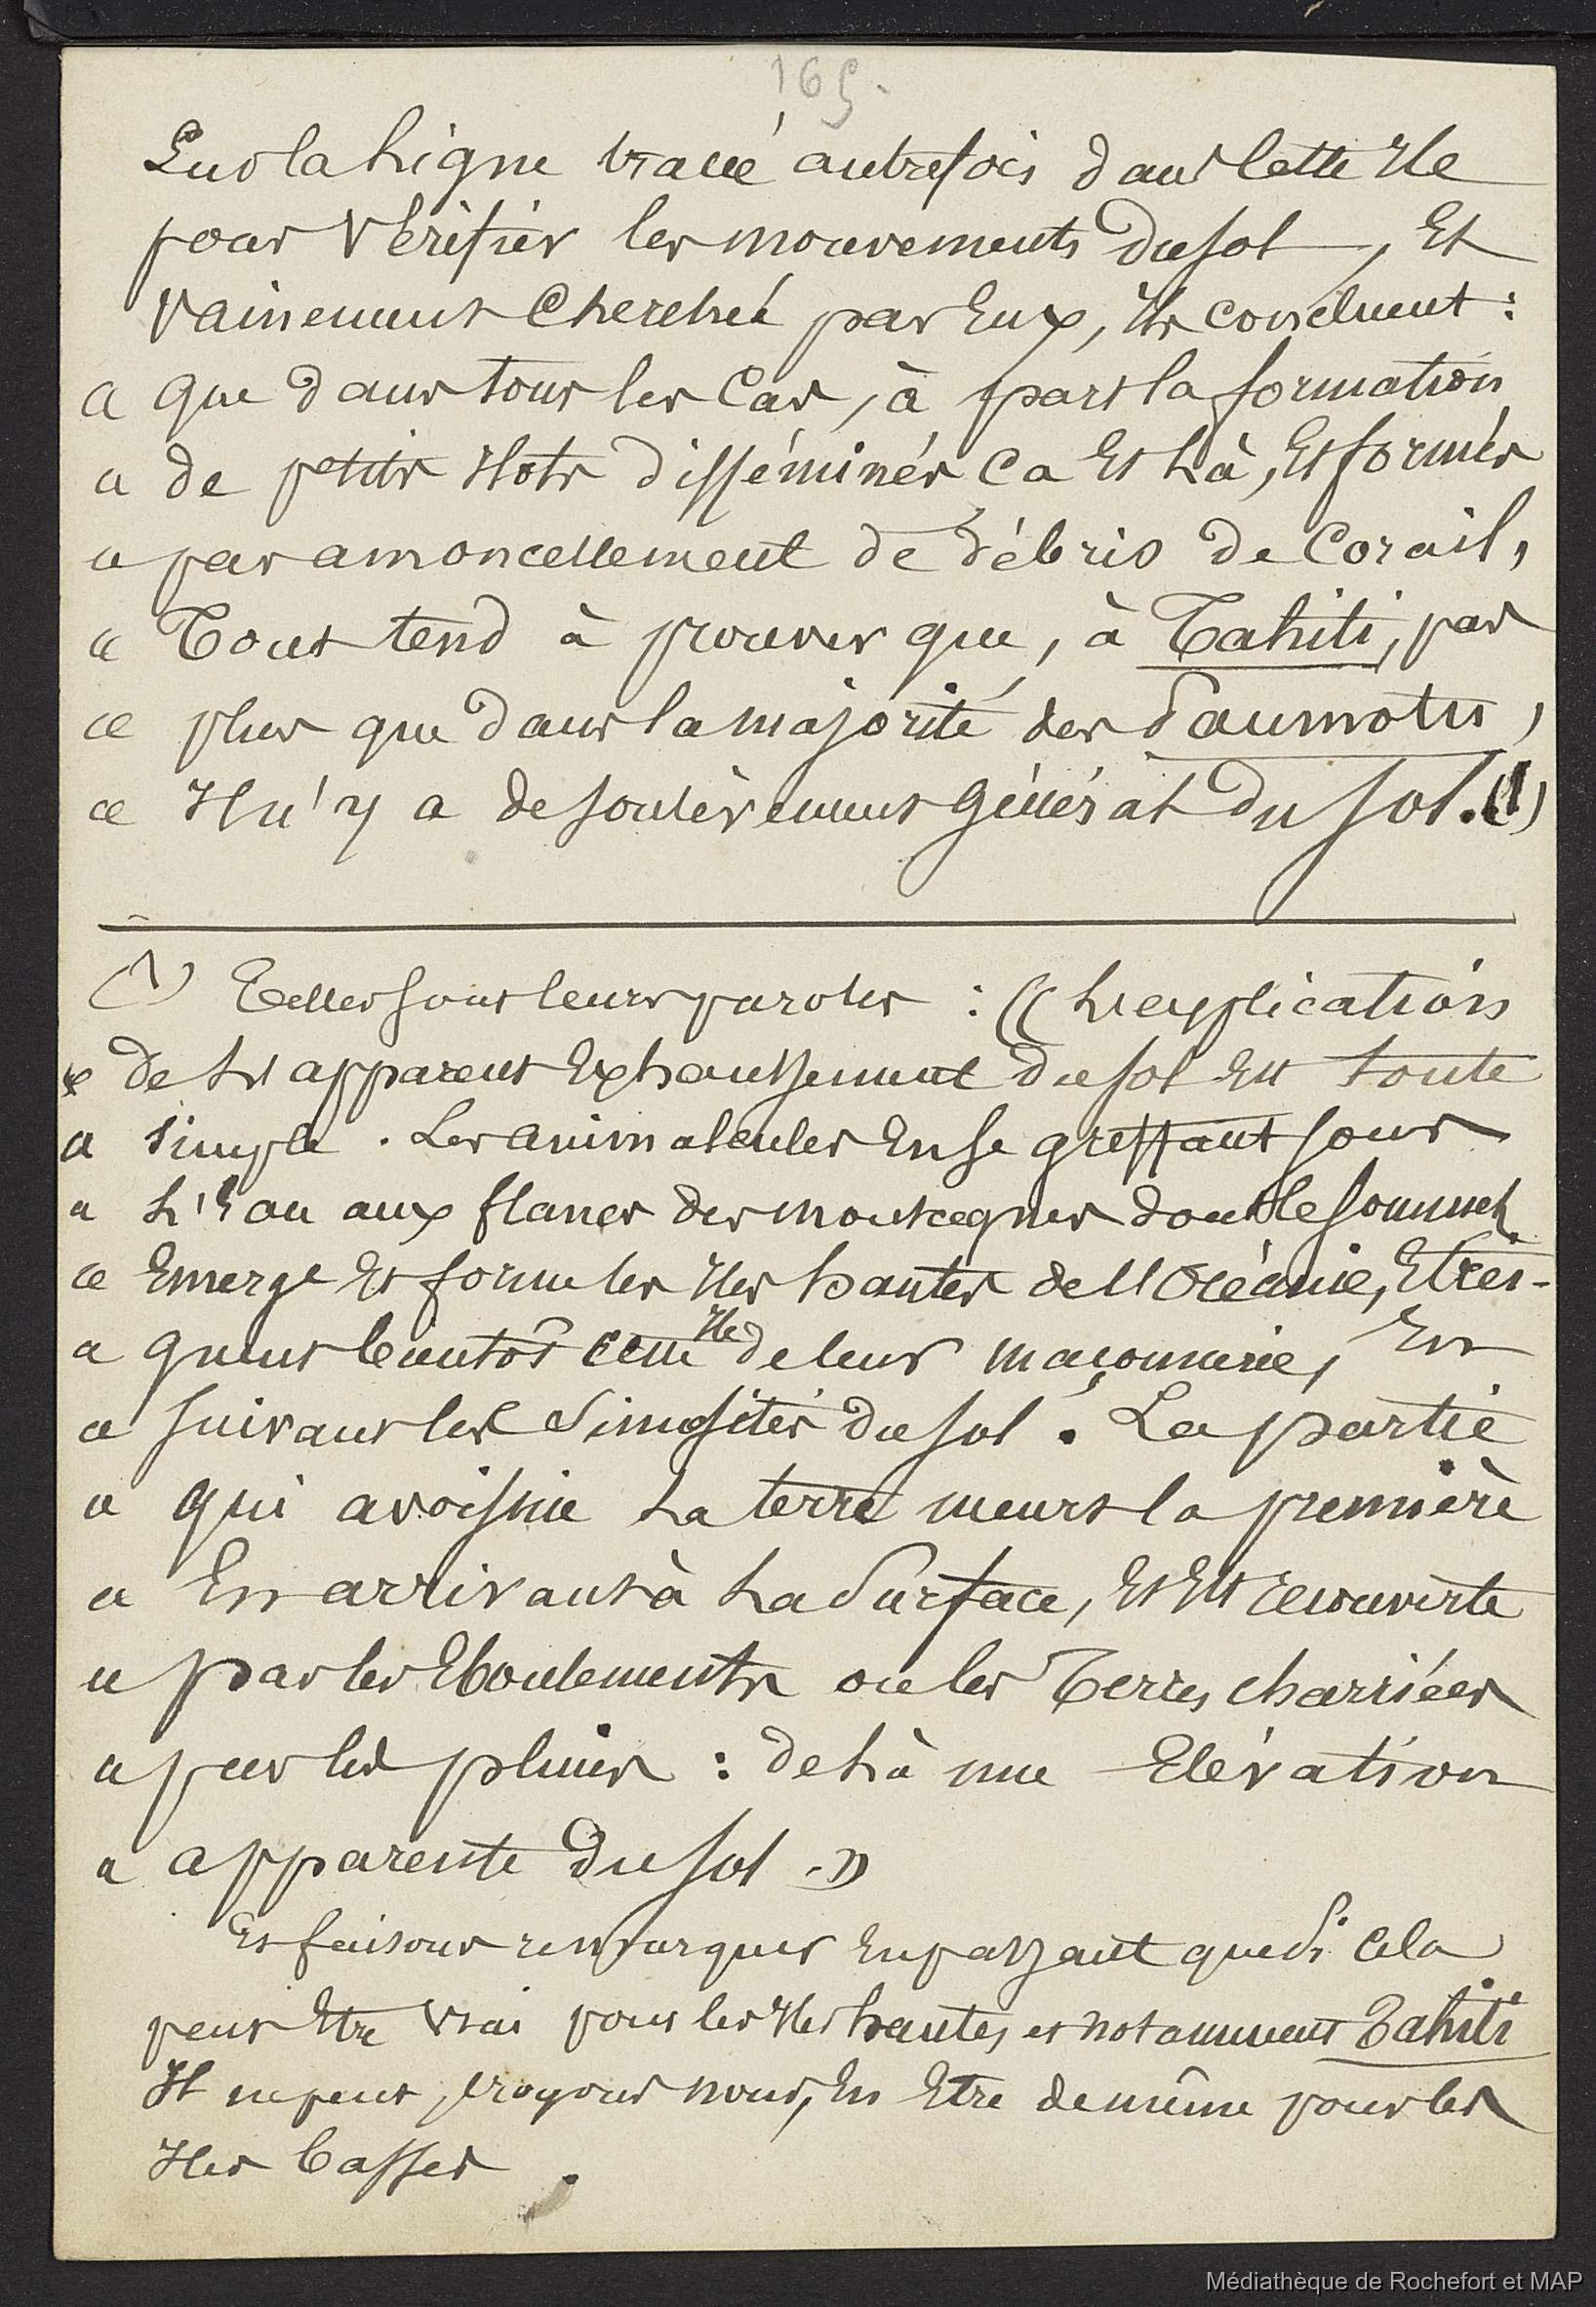 165.
Sur la Ligne tracée autrefois dans cette Ile
pour Vérifier les mouvements du sol, Et
vainement Cherchée par Eux, Ils concluent :
« Que dans tous les Cas, à part la formation
« de petits Ilots disséminés Ca Et Là, Et formés
« par amoncellement de débris de Corail,
« Tout tend à prouver que, à Tahiti, pas
« plus que dans la majorité des Paumotu,
« Il n'y a de soulèvement Général du Sol. (1)
(1) Telles sont leurs paroles : « L'explication
« de Let apparent Exhaussement du sol Est toute
« simple. Les animalcules En se greffant sous
« L'Eau aux flancs des montagnes dont le Sommet
« Emerge Et forme les Iles hautes de l'Océanie, Etrei-
« gnent bientôt cette Ile de leur maçonnerie, En
« suivant les Sinuosités du sol. La partie
« qui avoisine La terre meurt la première
« En arrivant à La Surface, Et Est recouverte
« par les Eboulements ou les Terres charriées
« par les pluies : de Là une Elévation
« apparente du sol. »
Et faisons remarquer En passant que Si Cela
peut Etre Vrai pour les Iles hautes et notamment Tahiti
Il ne peut, croyons nous, En Etre de même pour les
Iles basses.
Médiathèque de Rochefort et MAP